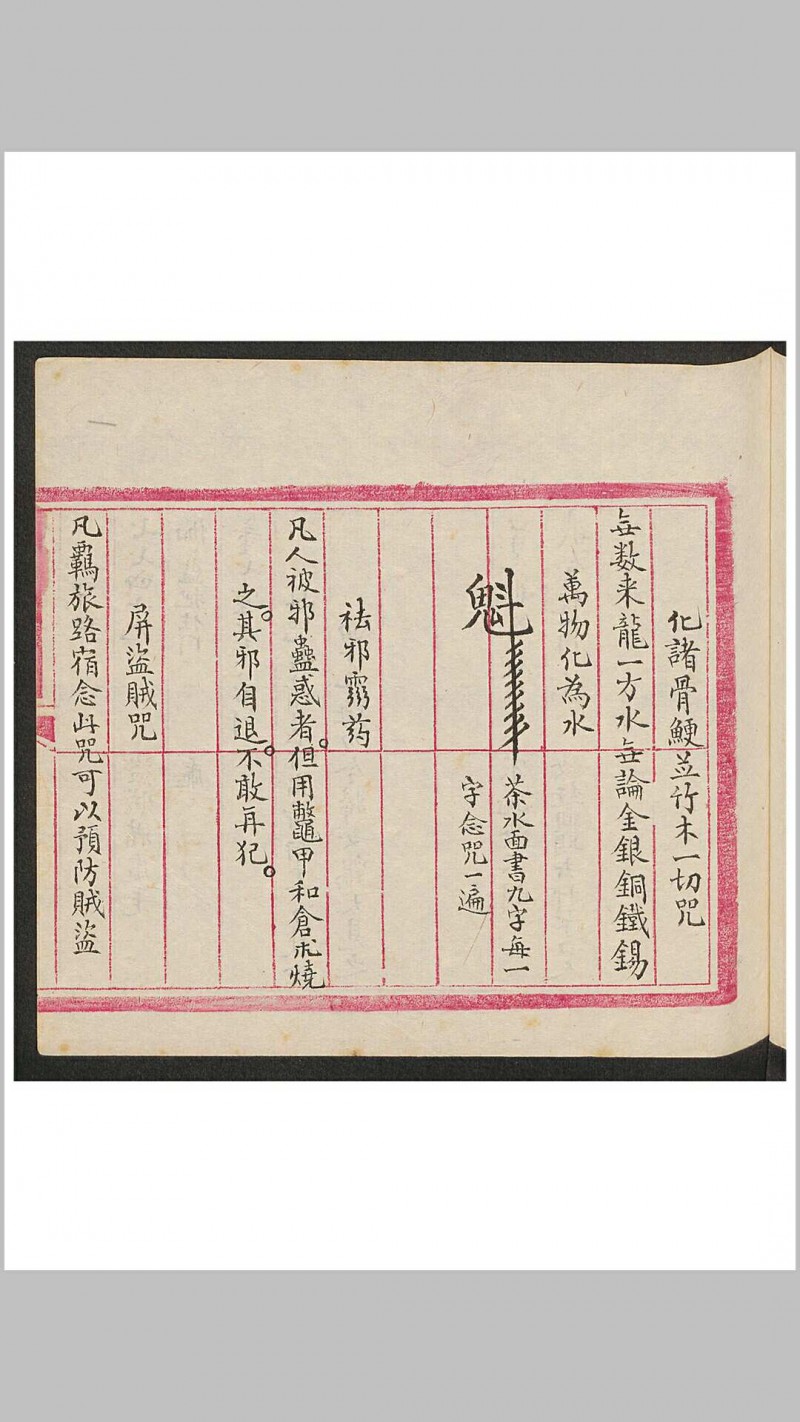 化諸骨鯁並竹木一切咒
無数来龍一方水無論金銀銅鐵錫
萬物化為水
魁
茶水面書九字每一
字念咒一遍
祛邪竅药
凡人被邪蠱惑者。但用鼈甲和倉朮燒
之。其邪自退。不敢再犯。
屏盜賊咒
凡羈旅路宿念此咒可以預防賊盜